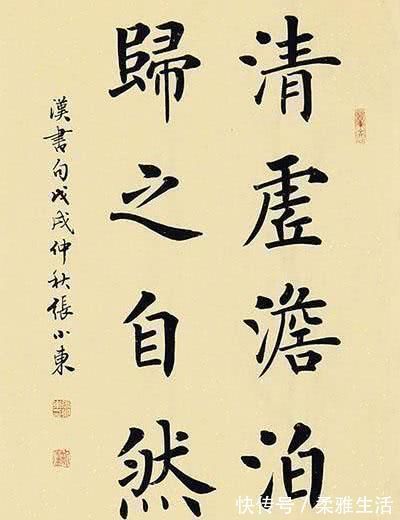 清虛澹泊
歸之自然
漢書句戊戌仲秋張小東
快传号/柔雅生活